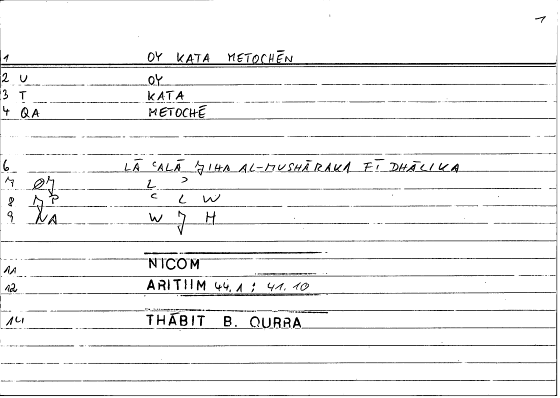 1
1 OY KATA METOCHĒN
2 U OY
3 T KATA
4 QA METOCHĒ
6 LĀ ʿALĀ JIHA AL-MUSHĀRAKA FĪ DHĀLIKA
7 ØJ L ʾ
8 JP ʿ L W
9 NA W J H
11 NICOM
12 ARITIIM 44.1 ; 41.10
14 THĀBIT B. QURRA